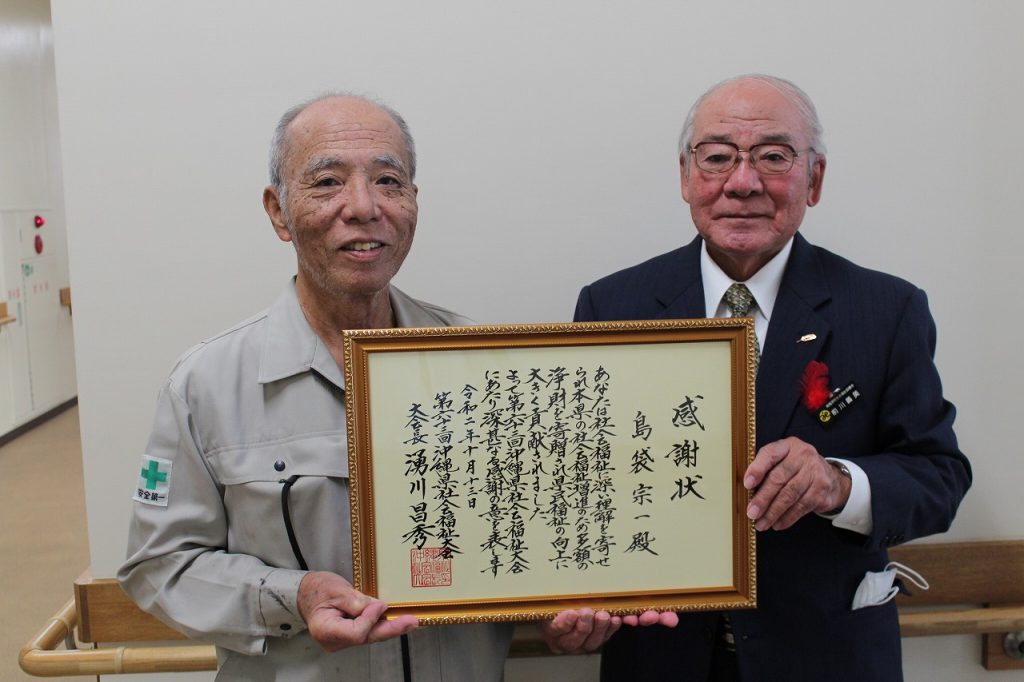 感謝状
島袋 宗一 殿
あなたは社会福祉に深い理解を寄せ
られ本県の社会福祉増進のため多額の
浄財を寄贈され県民福祉の向上に
大きく貢献されました
よって第六十三回沖縄県社会福祉大会
にあたり深甚な感謝の意を表します
令和二年十月十三日
第六十三回沖縄県社会福祉大会
大会長 湧川昌秀
安全第一